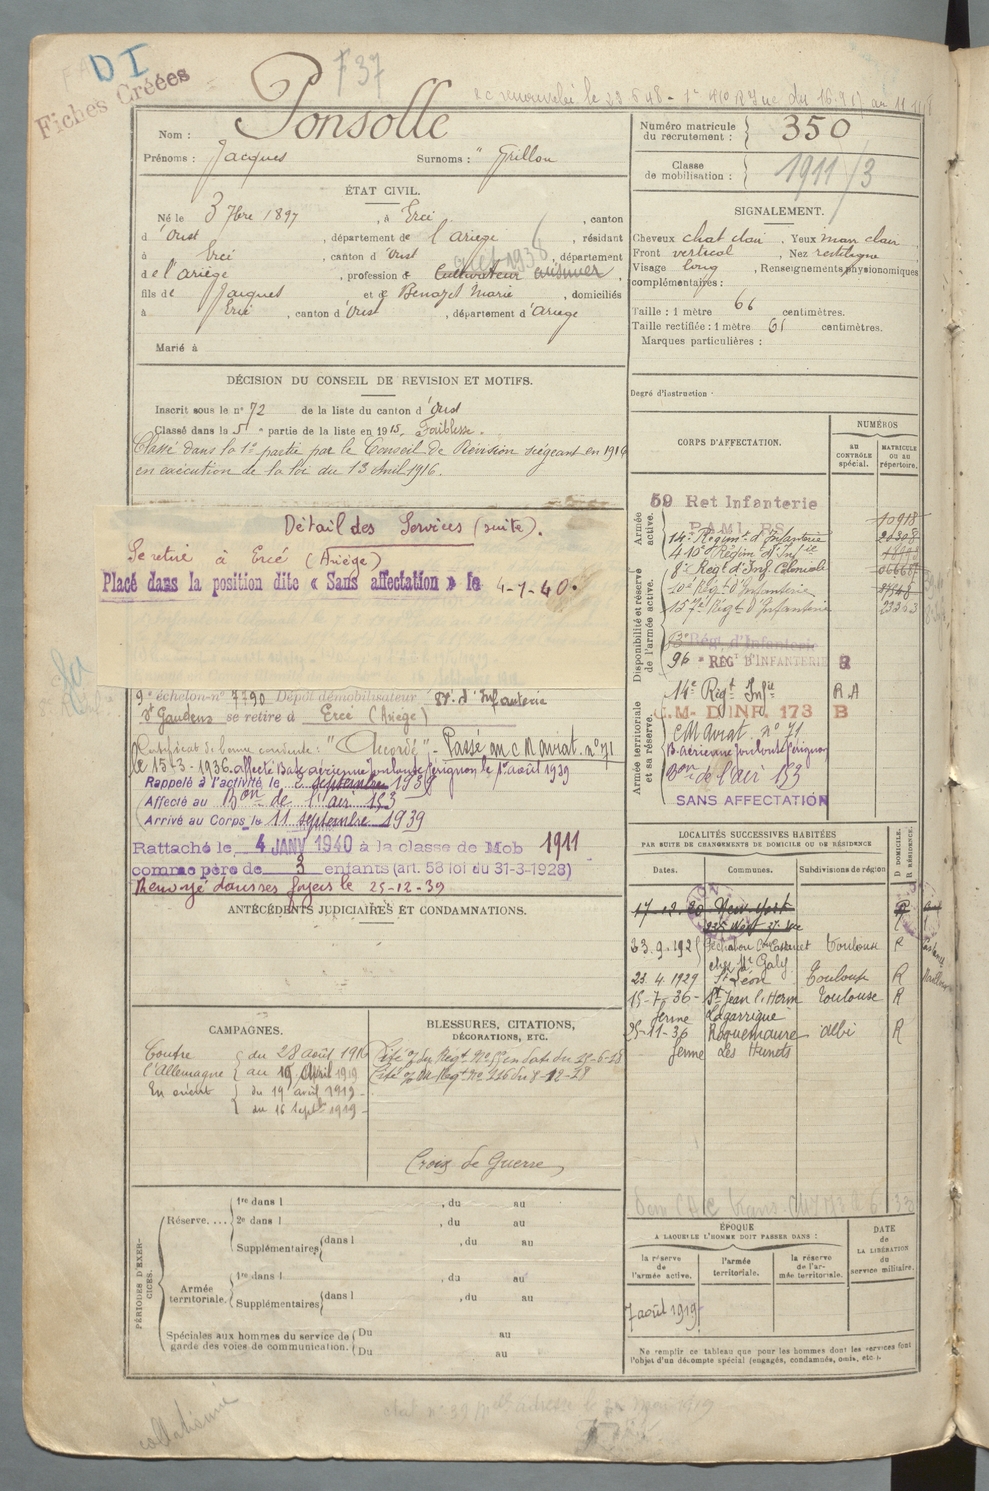 DI
Fiches Créées
F 37
Nom : Ponsolle
Prénoms : Jacques Surnoms : " Grillou
Numéro matricule du recrutement : 350
Classe de mobilisation : 1911/3
ÉTAT CIVIL.
Né le 3 7bre 1897, à Ercé, canton
d'Oust, département de l'Ariège, résidant
à Ercé, canton d'Oust, département
de l'Ariège, profession de Cultivateur
fils de Jacques et de Benazet Marie, domiciliés
à Ercé, canton d'Oust, département d'Ariège
Marié à
SIGNALEMENT.
Cheveux chat clair. Yeux marr clair
Front vertical. Nez rectiligne
Visage long, Renseignements physionomiques
complémentaires :
Taille : 1 mètre 66 centimètres.
Taille rectifiée : 1 mètre 61 centimètres.
Marques particulières :
Degré d'instruction
DÉCISION DU CONSEIL DE REVISION ET MOTIFS.
Inscrit sous le n° 72 de la liste du canton d'Oust
Classé dans la 5e partie de la liste en 1915. Faiblesse.
Classé dans la 1e partie par le Conseil de Révision siégeant en 1916
en exécution de la loi du 13 Avril 1916.
Détail des Services (suite).
Se retire à Ercé (Ariège)
Placé dans la position dite « Sans affectation » le 4-7-40.
9e échelon n° 7790 Dépôt démobilisateur d'Infanterie
St Gaudens se retire à Ercé (Ariège)
Certificat de bonne conduite : "Accordé" - Passé au C M aviat. n° 71
le 15-3-1936. affecté Bat. aérienne Toulouse Pérignon le 1er août 1939
Rappelé à l'activité le 2 septembre 1939
Affecté au Bon de l'air 153
Arrivé au Corps le 11 septembre 1939
Rattaché le 4 JANV 1940 à la classe de Mob 1911
comme père de 3 enfants (art. 58 loi du 31-3-1928)
Renvoyé dans ses foyers le 25-12-39
CORPS D'AFFECTATION.
NUMÉROS
AU CONTRÔLE spécial.
MATRICULE OU AU répertoire.
Armée active.
59 Ret Infanterie
PAMIERS
14e Régimt d'Infanterie
410e Régim d'Infie
8e Régt d'Inf Coloniale
Disponibilité et réserve de l'armée active.
157e Régt d'Infanterie
Régt d'Infanterie
96e RÉGt D'INFANTERIE R
Armée territoriale et sa réserve.
14e Régt Infie R.A
C.M. D'INF. 173 B
C M Aviat. n° 71
B. aérienne Toulouse Pérignon
Bon de l'air 153
SANS AFFECTATION
ANTÉCÉDENTS JUDICIAIRES ET CONDAMNATIONS.
LOCALITÉS SUCCESSIVES HABITÉES
PAR SUITE DE CHANGEMENTS DE DOMICILE OU DE RÉSIDENCE
Dates. Communes. Subdivisions de région D. DOMICILE. R. RÉSIDENCE.
17-12-20 New-York R
Toulouse R
chez Mr Galy
23.4.1929 St Léon Toulouse R
15-7-36- St Jean l'Herm Toulouse R
ferme Lagarrigue
25-11-36 Roquemaure Albi R
ferme des Hunets
CAMPAGNES.
Contre l'Allemagne du 28 août 1916
au 19 Avril 1919
En orient du 19 avril 1919
du 16 Septbre 1919
BLESSURES, CITATIONS,
DÉCORATIONS, ETC.
Croix de Guerre
PÉRIODES D'EXERCICES.
Réserve....
1re dans l , du au
2e dans l , du au
Supplémentaires dans l , du au
Armée territoriale.
1re dans l , du au
Supplémentaires dans l , du au
Spéciales aux hommes du service de garde des voies de communication. Du au
Du au
ÉPOQUE
A LAQUELLE L'HOMME DOIT PASSER DANS :
la réserve de l'armée active.
l'armée territoriale.
la réserve de l'armée territoriale.
DATE de LA LIBÉRATION du service militaire.
7 août 1919
Ne remplir ce tableau que pour les hommes dont les services font
l'objet d'un décompte spécial (engagés, condamnés, omis, etc.).
collationné